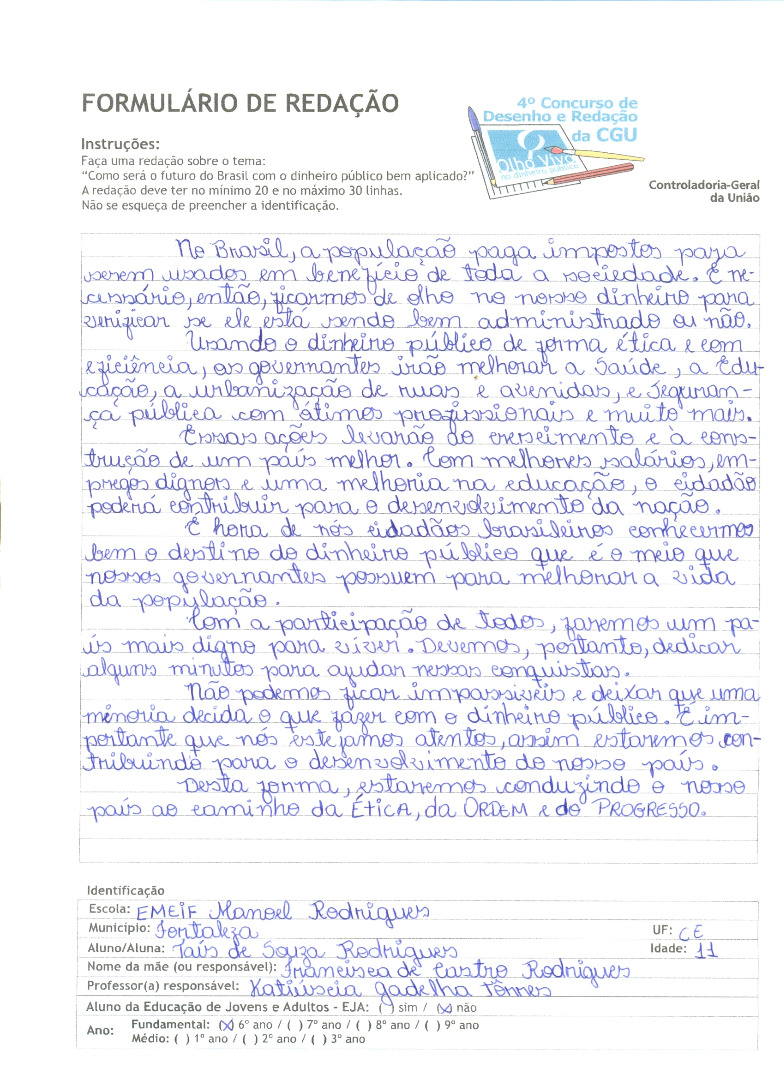 FORMULÁRIO DE REDAÇÃO
4º Concurso de
Desenho e Redação
da CGU
Olho Vivo
no dinheiro público
Controladoria-Geral
da União
Instruções:
Faça uma redação sobre o tema:
"Como será o futuro do Brasil com o dinheiro público bem aplicado?"
A redação deve ter no mínimo 20 e no máximo 30 linhas.
Não se esqueça de preencher a identificação.
No Brasil, a população paga impostos para
serem usados em benefício de toda a sociedade. É ne-
cessário, então, ficarmos de olho no nosso dinheiro para
verificar se ele está sendo bem administrado ou não.
Usando o dinheiro público de forma ética e com
eficiência, os governantes irão melhorar a Saúde, a Edu-
cação, a urbanização de ruas e avenidas, e Seguran-
ça pública com ótimos profissionais e muito mais.
Essas ações levarão ao crescimento e à cons-
trução de um país melhor. Com melhores salários, em-
pregos dignos e uma melhoria na educação, o cidadão
poderá contribuir para o desenvolvimento da nação.
É hora de nós cidadãos brasileiros conhecermos
bem o destino do dinheiro público que é o meio que
nossos governantes possuem para melhorar a vida
da população.
Com a participação de todos, faremos um pa-
ís mais digno para viver. Devemos, portanto, dedicar
alguns minutos para ajudar nessas conquistas.
Não podemos ficar impassíveis e deixar que uma
minoria decida o que fazer com o dinheiro público. É im-
portante que nós estejamos atentos, assim estaremos con-
tribuindo para o desenvolvimento do nosso país.
Desta forma, estaremos conduzindo o nosso
país ao caminho da ÉTICA, da ORDEM e do PROGRESSO.
Identificação
Escola: EMEIF Manoel Rodrigues
Município: Fortaleza UF: CE
Aluno/Aluna: Taís de Souza Rodrigues Idade: 11
Nome da mãe (ou responsável): Francisca de Castro Rodrigues
Professor(a) responsável: Katiúscia Gadelha Tôrres
Aluno da Educação de Jovens e Adultos - EJA: ( ) sim / (x) não
Ano: Fundamental: (x) 6º ano / ( ) 7º ano / ( ) 8º ano / ( ) 9º ano
Médio: ( ) 1º ano / ( ) 2º ano / ( ) 3º ano